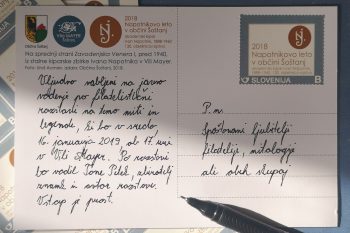 2018
Napotnikovo leto
v občini Šoštanj
Občina Šoštanj
VILA MAYER
Na sprednji strani
1940
iz stalne kiparske zbirke Ivana Napotnika v Vili Mayer.
Občina Šoštanj, 2018.
Vljudno vabljeni na javno
vodenje po filatelistični
razstavi na temo miti in
legende, ki bo v sredo,
16. januarja 2019 ob 17. uri
v Vili Mayer. Po razstavi
bo vodil Tone Petek, zbiratelj
znamk in avtor razstave.
Vstop je prost.
2018
Napotnikovo leto
v občini Šoštanj
SLOVENIJA
B
P. n.
spoštovani ljubitelji
filatelije, mitologije
ali obeh skupaj